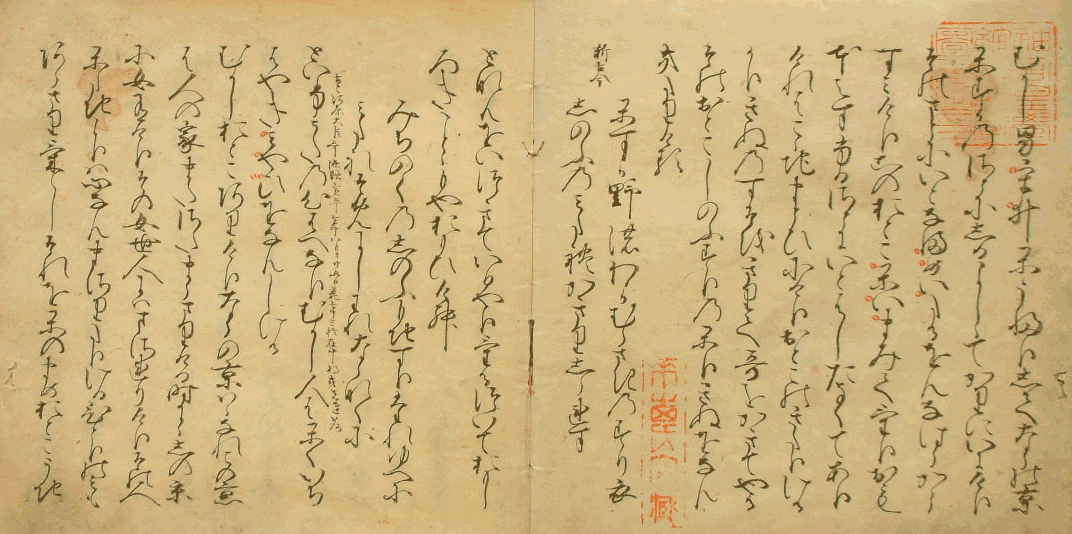 むかし男宇井かうふりしてならの京
かすかの里にしるよしゝてかりにいにけり
その里にいとなまめいたるをんなはらから
すみけりこのおとこかいまみてけりおも
ほえすふる里にいとはしたなくてあり
けれはこゝ地まとひにけりおとこのきたりける
かりきぬのすそをきりて哥をかきてやる
そのおとこしのふすりのかりきぬをなん
きたりける
新古今
かすか野のわかむらさきのすり衣
しのふのみたれかきりしられす
となんをいつきていひやりけるついておもし
ろきことゝもやおもひけん
みちのくのしのふもちすりたれゆへに
みたれそめにしわれならなくに
といふうたの心はへなりむかし人はかくいち
はやきみやひをなんしける
むかしおとこありけりならの京はゝなれこの京
は人の家またさたまらさりける時ににしの京
に女ありけりその女世人にはまされりけりその人
かたちよりは心なんまさりたりけるひとりのみも
あらさりけらしそれをかのまめおとこうち